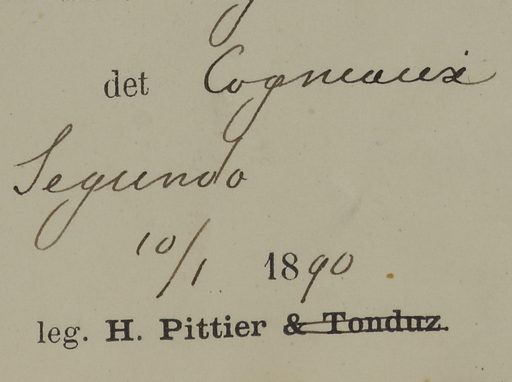 det Cogneaux
Segundo
10/1 1890
leg. H. Pittier & Tonduz.